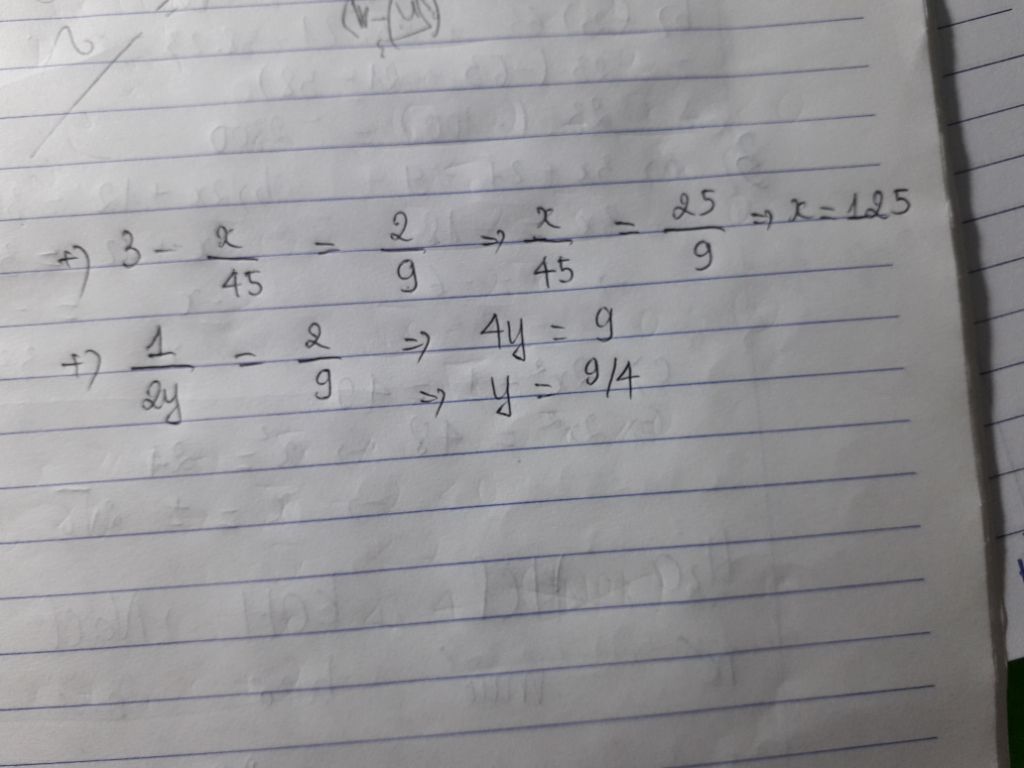 +) 3 - x/45 = 2/9 => x/45 = 25/9 => x = 125
+) 1/2y = 2/9 => 4y = 9
=> y = 9/4